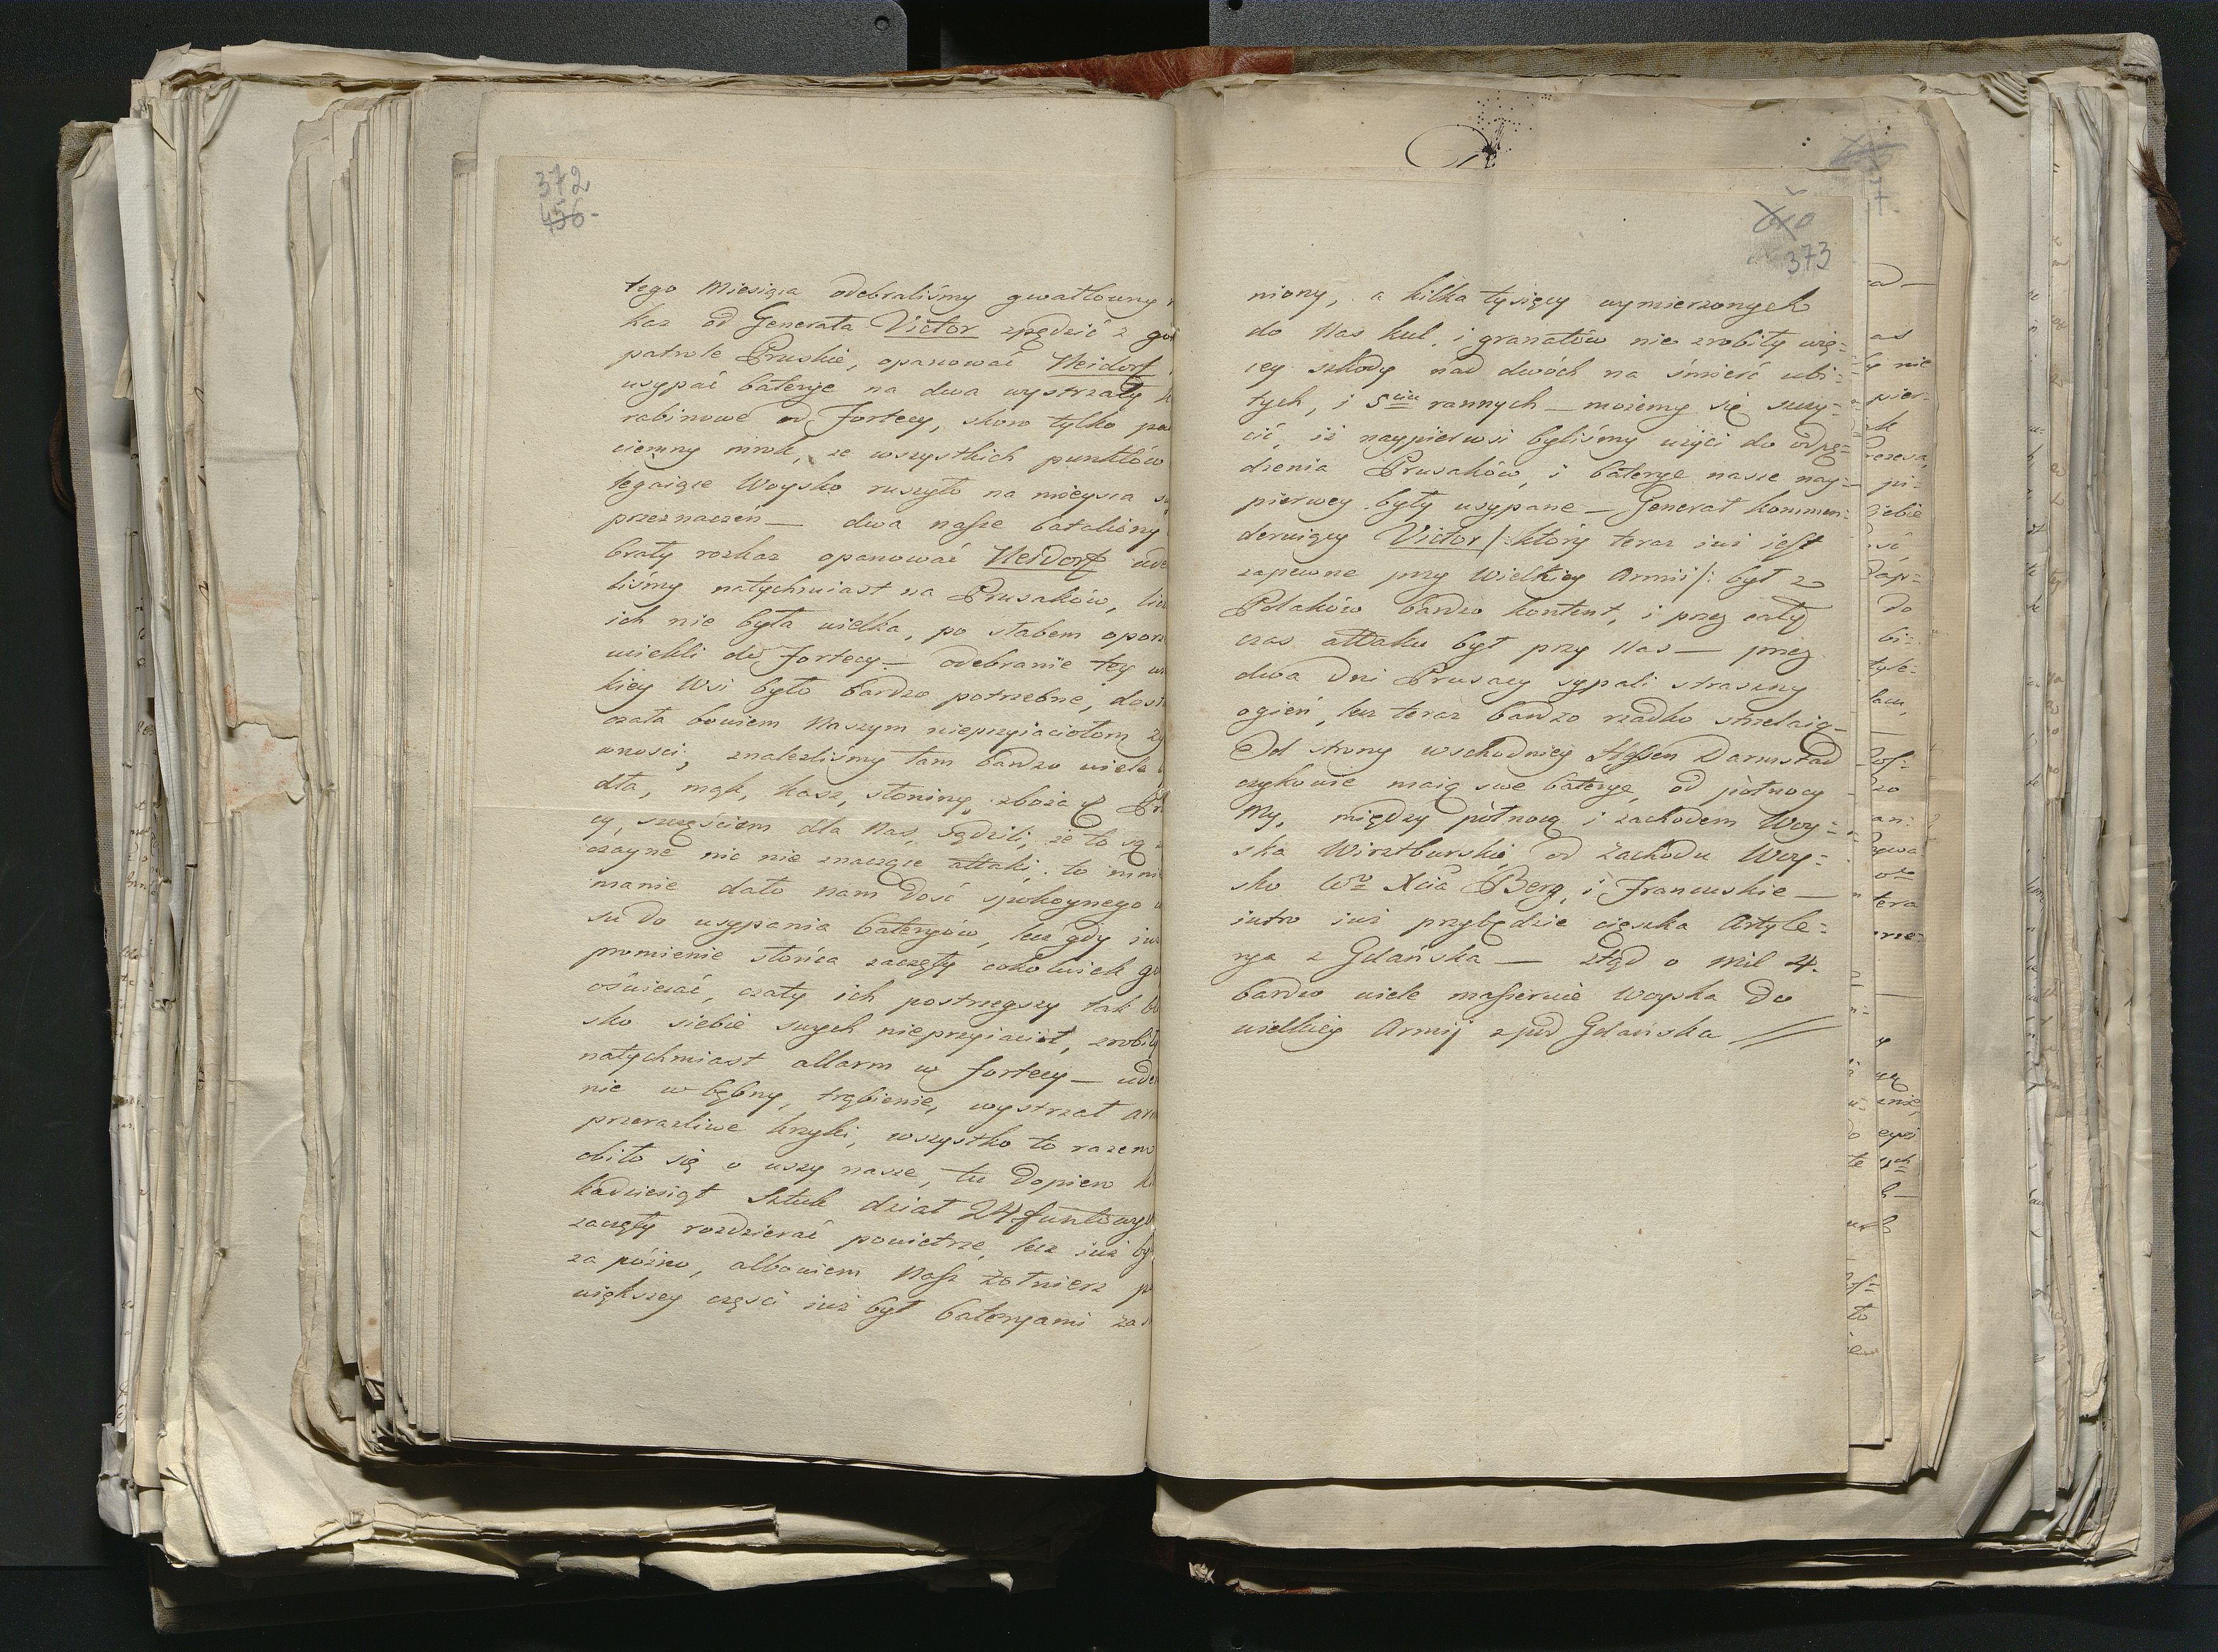 372
456-
tego Miesiąca odebraliśmy gwałtowny
kaz od Generała Victor spędzić z gór
patrole Pruskie, opanować Neidorf
usypać baterye na dwa wystrzały k
rabinowe od Fortecy, skoro tylko pa
ciemny mrok, ze wszystkich punktów
legaiące Woysko ruszyło na mieysca s
przeznaczeń — dwa nasze bataliony
brały rozkaz opanować Neidorf ude
liśmy natychmiast na Prusaków, licz
ich nie była wielka, po słabem oporz
uciekli do Fortecy — odebranie tey w
kiey Wsi było bardzo potrzebne, dost
czała bowiem Naszym nieprzyiaciołom ży
wności; znaleźliśmy tam bardzo wiele b
dła, mąk, kasz, słoniny, zboża &
cy, szczęściem dla Nas, sądzili, że to są
czayne nic nie znaczące attaki, to mni
manie dało nam dość spokoynego
su do usypania bateryów, lecz gdy iuż
promienie słońca zaczęły cokolwiek gó
oświecać, czaty ich postrzegszy tak bli
sko siebie swych nieprzyiaciół, zrobiły
natychmiast allarm w fortecy — ude
nie w bębny, trąbienie, wystrzał arm
przeraźliwe krzyki, wszystko to razem
obiło się o uszy nasze, tu dopiero ki
kadziesiąt sztuk dział 24 funtowy
zaczęły rozdzierać powietrze, lecz iuż by
za późno, albowiem Nasz Żołnierz p
większey części iuż był bateryami zas
373
niony, a kilka tysięcy wymierzonych
do Nas kul, i granatów nie zrobiły wię=
cey szkody nad dwóch na śmierć ubi=
tych, i 5ciu rannych — możemy się szczy=
cić, iż naypierwsi byliśmy użyci do odpę=
dzenia Prusaków, i baterye nasze nay=
pierwey były usypane — Generał kommen=
deruiący Victor /: który teraz iuż iest
zapewne przy Wielkiey Armii :/ był z
Polaków bardzo kontent, i przez cały
czas attaku był przy Nas — przez
dwa Dni Prusacy sypali straszny
ogień, lecz teraz bardzo rzadko strzelaią —
Od strony wschodniey Hessen Darmstad
czykowie maią swe baterye, od północy
My, między północą i zachodem Woy=
ska Wirztburskie, od Zachodu Woy=
sko Wo Xcia Berg, i Francuskie —
iutro iuż przybędzie cięszka Artyle=
rya z Gdańska — ztąd o mil 4.
bardzo wiele maszeruie Woyska do
wielkiey Armij z pod Gdańska //